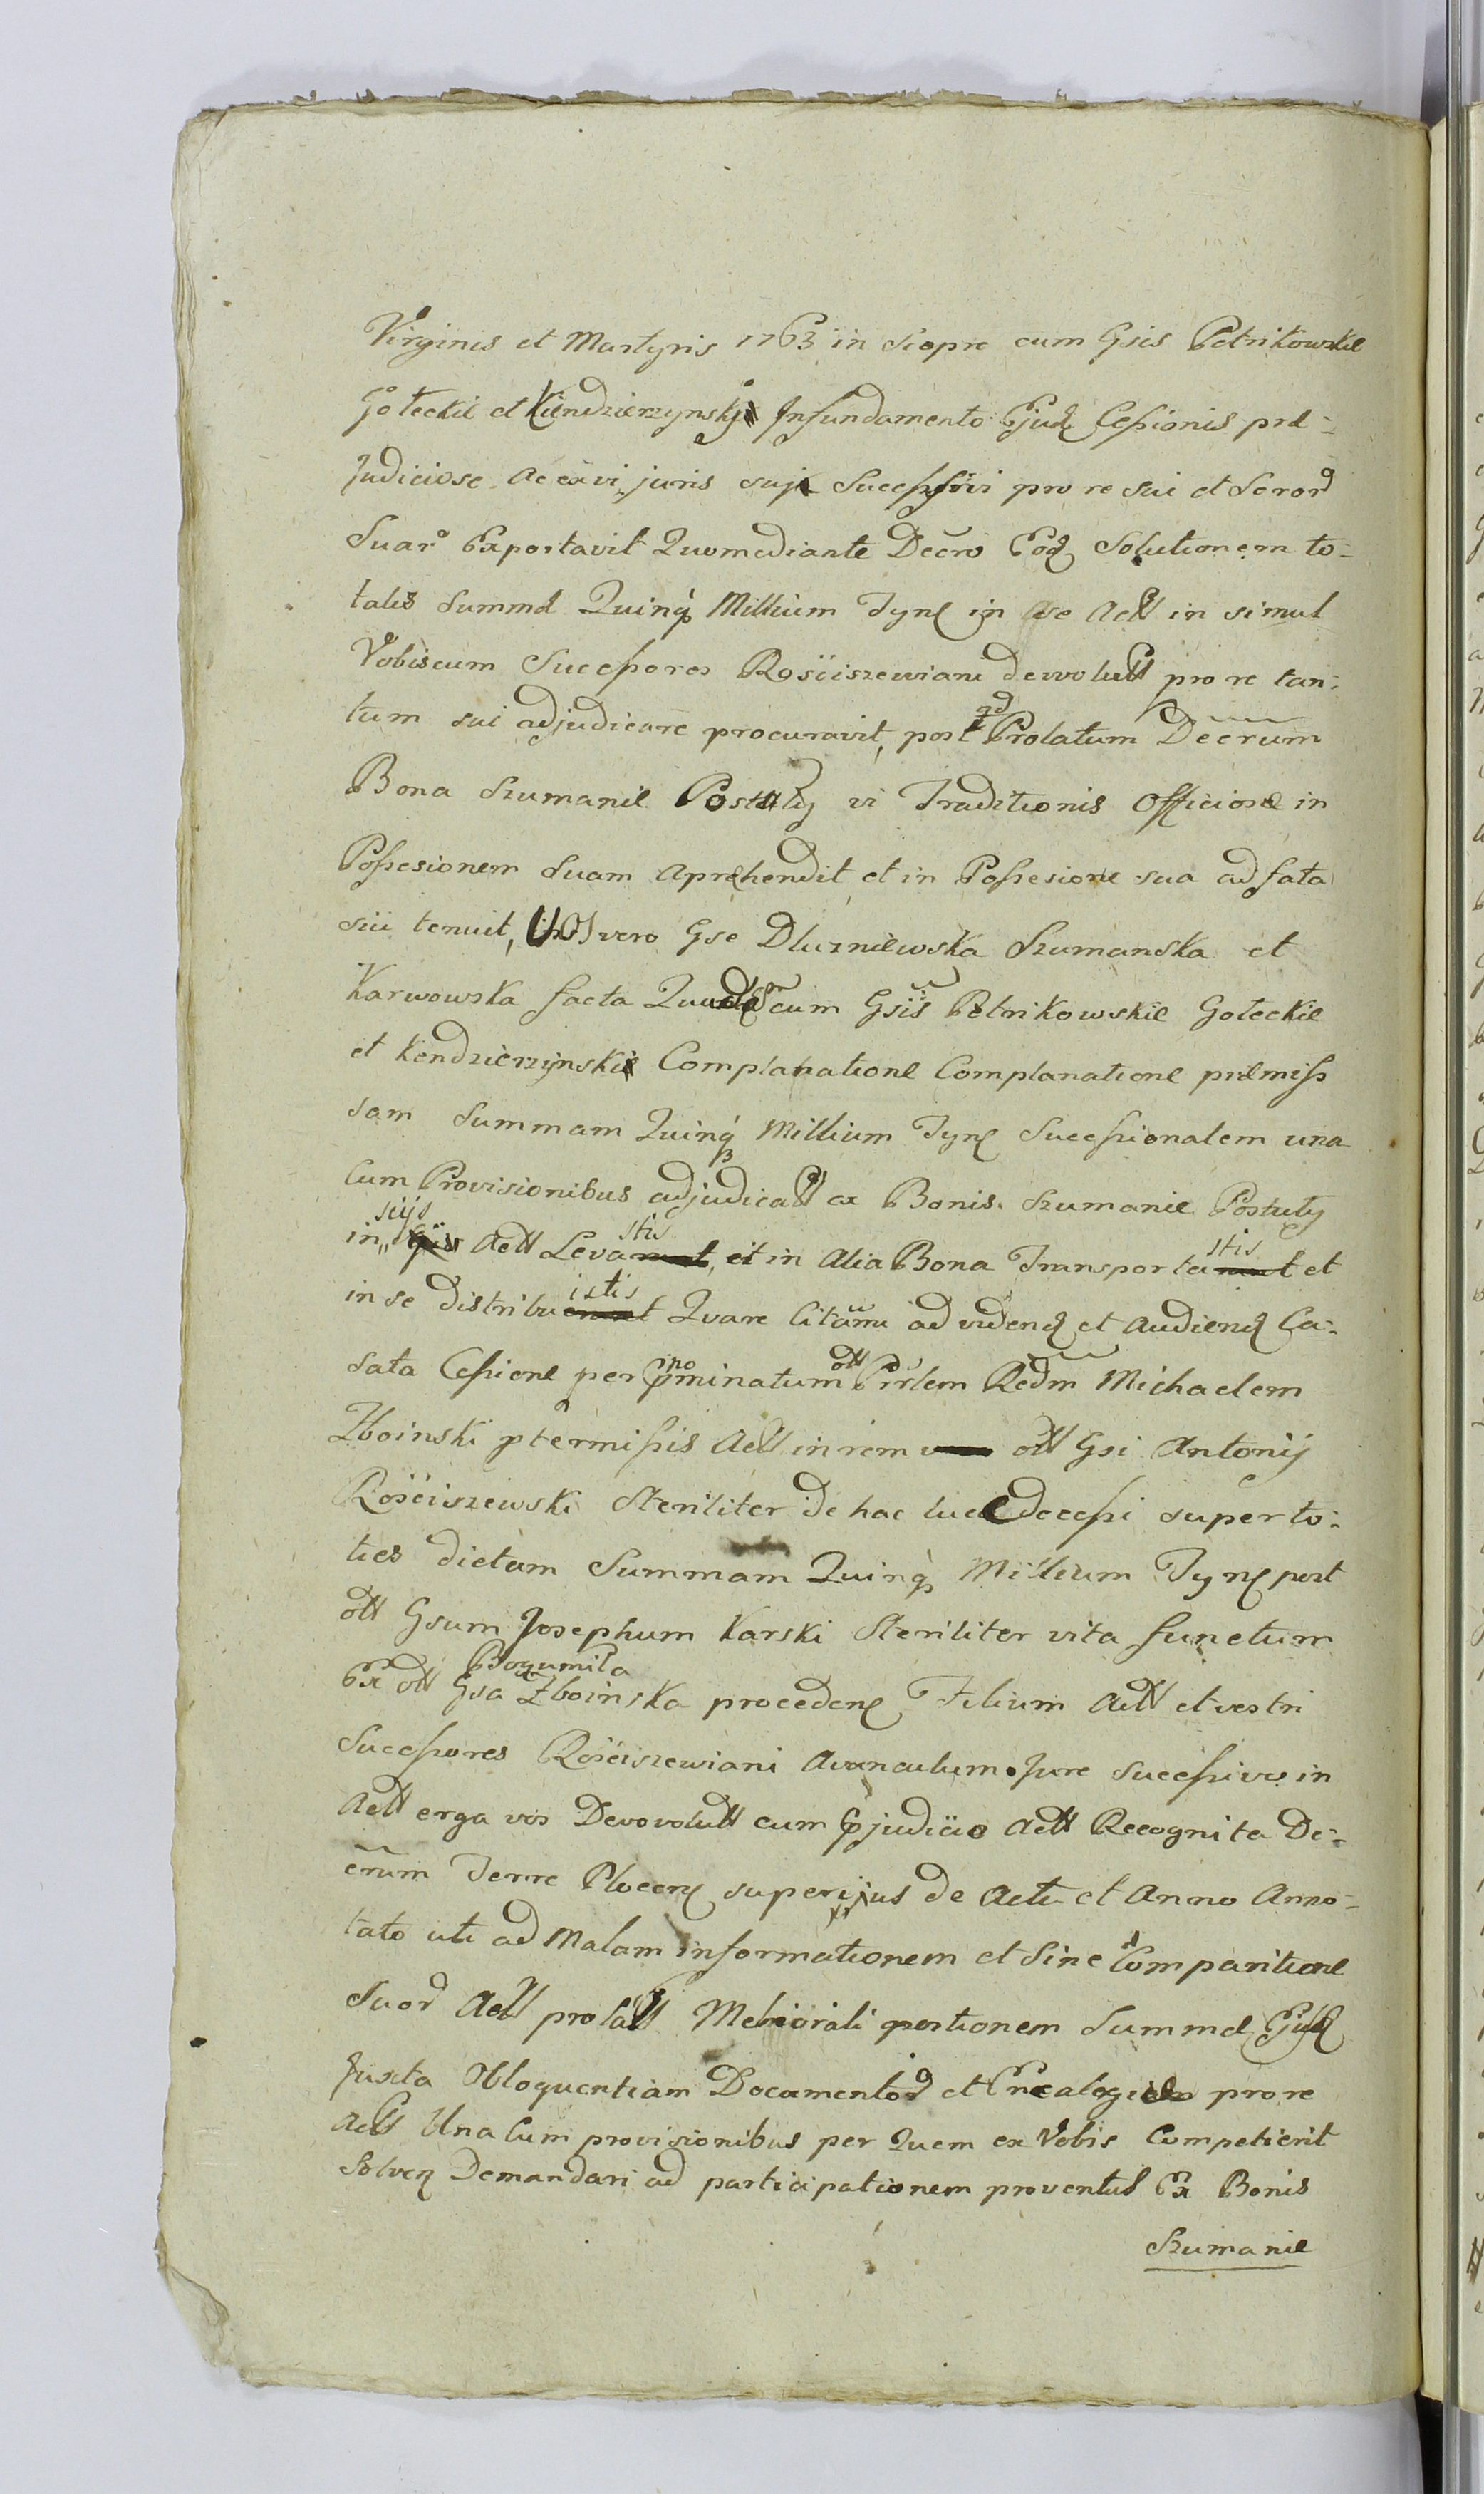 Virginis et Martyris 1763 in Siepre cum Gsis Petrikowskie
Goteckie et Kiendzierzynski Infundamento Ejusd Cessionis præ-
judiciose ac ex vi juris sui Successivi pro re sui et Soror
Suar Exportavit Quomediante Decro Eod Solutionem to-
talis Summæ Quinq Millium Tynf in se Actt in simul
Vobiscum Successores Rosciszewiani devvolutt pro re tan-
tum sui adjudicare procuravit, post qd Prolatum Decrum
Bona Szumanie Pustuly vi Traditionis Officiosæ in
Possesionem Suam Aprehendit et in Possesione sua ad fata
sui tenuit, Vos vero Gse Dluzniewska Szumanska et
Karwowska facta cum Gsis Petrikowskie Goteckie
et Kendzierzynskie Complanatione Complanatione præmiss
sam Summam Quinq Millium Tynf Successionalem una
cum Provisionibus adjudicatt ex Bonis Szumanie Postuly
inscijs Actt Levastis, et in Alia Bona Transportastis et
in se distribuistis Quare Citamu ad vidend et audiend Ca-
sata Cessione per nominatum ott Prrlem Redm Michaelem
Zboinski ptermissis Actt in rem ott Gsi Antonij
Rosciszewski Steriliter de hac luce decessi super to-
ties dictam Summam Quinq Millium Tynf post
ott Gsum Josephum Karski Steriliter vita functum
Ex ott Gsa Bogumila Zboinska proceden Filium Actt et vestri
Successores Rosciszewiani Avunculum Jure Successivo in
Actt erga vos Devovolutt cum pjudicio Actt Recognita De-
crum Terre Plocen superius de Actu et Anno Anno-
tato uti ad Malam informationem et Sine Comparitione
Suor Actt prolatt Memoriali portionem Summæ Ejusd
Juxta Obloquentiam Documentor et pro re
Actt Una Cum provisionibus per Quem ex Vobis Competierit
Solven Demandari ad participationem proventus Ex Bonis
Szumanie